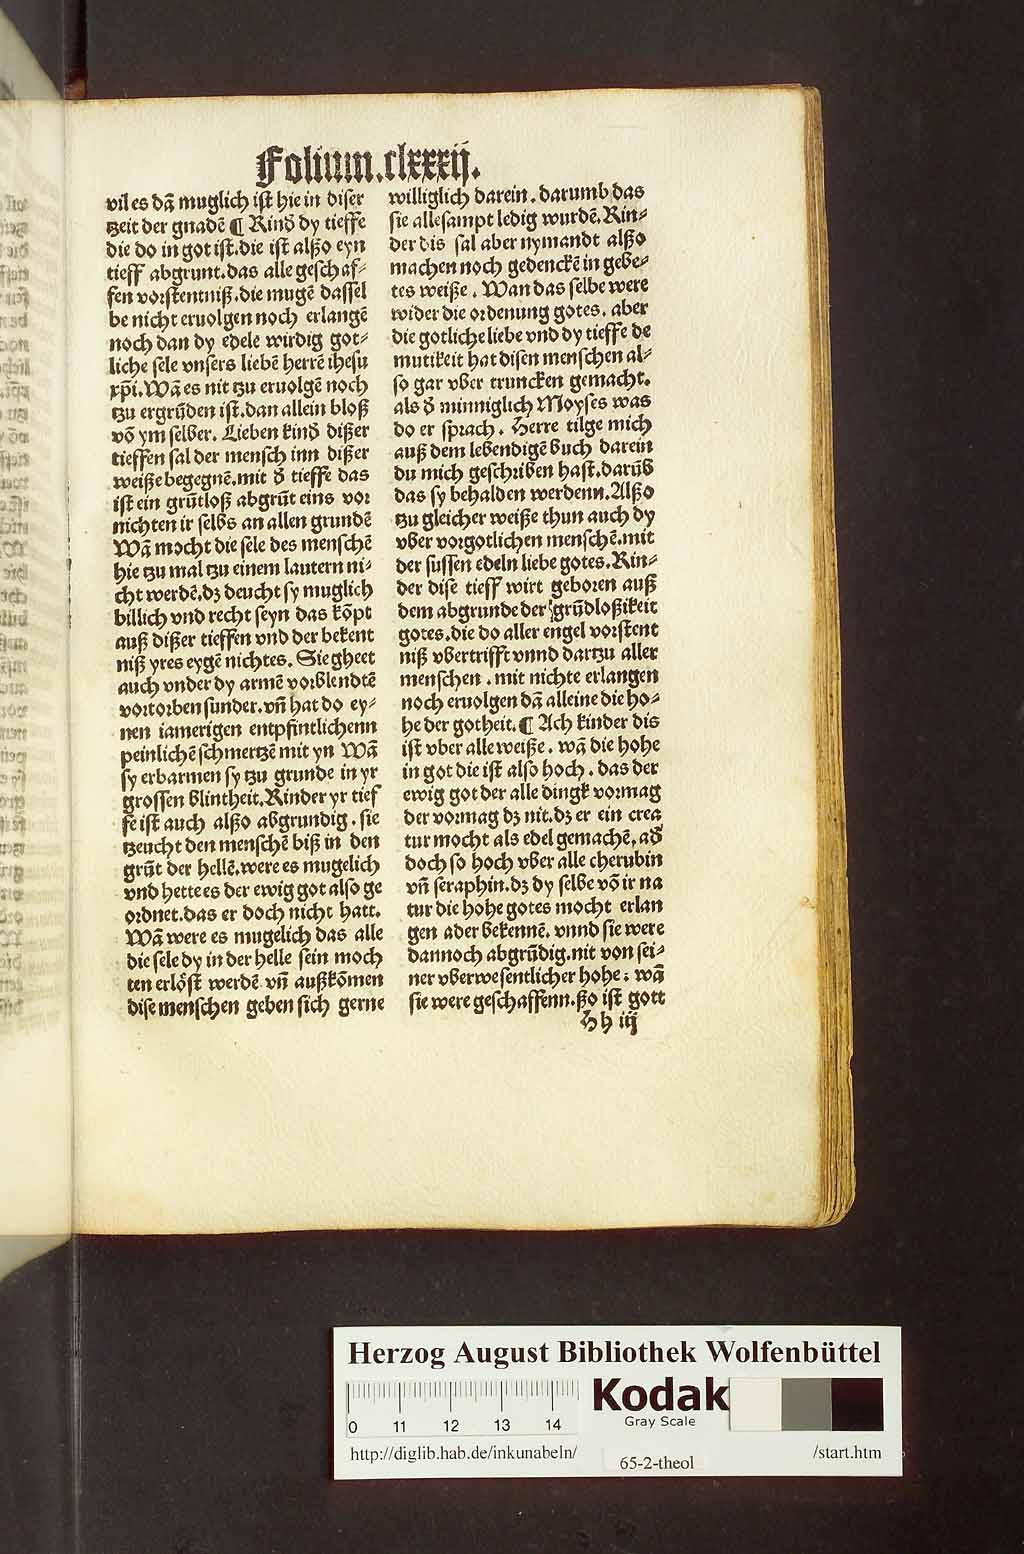 Folium.clxxxij.
vil es dā muglich ist hie in diser
tzeit der gnadē ¶ Kinď dy tieffe
die do in got ist.die ist alßo eyn
tieff abgrunt.das alle geschaf-
fen vorstentniß.die mugē dassel
be nicht eruolgen noch erlangē
noch dan dy edele wirdig got-
liche sele vnsers liebē herrē ihesu
xp̄i.Wā es nit tzu eruolgē noch
tzu ergrūden ist.dan allein bloß
vō ym selber. Lieben kinď dißer
tieffen sal der mensch inn dißer
weiße begegnē.mit ď tieffe das
ist ein grūtloß abgrūt eins vor
nichten ir selbs an allen grundē
Wā mocht die sele des menschē
hie tzu mal tzu einem lautern ni-
cht werdē.dꝫ deucht sy muglich
billich vnd recht seyn das kōpt
auß dißer tieffen vnd der bekent
niß yres eygē nichtes. Sie gheet
auch vnder dy armē vorblendtē
vortorben sunder.vn̄ hat do ey-
nen iamerigen entpfintlichenn
peinlichē schmertzē mit yn Wā
sy erbarmen sy tzu grunde in yr
grossen blintheit.Kinder yr tief
fe ist auch alßo abgrundig.sie
tzeucht den menschē biß in den
grūt der hellē.were es mugelich
vnd hette es der ewig got also ge
ordnet.das er doch nicht hatt.
Wā were es mugelich das alle
die sele dy in der helle sein moch
ten erlöst werdē vn̄ außkōmen
dise menschen geben sich gerne
williglich darein.darumb das
sie allesampt ledig wurdē.Kin-
der dis sal aber nymandt alßo
machen noch gedenckē in gebe-
tes weiße. Wan das selbe were
wider die ordenung gotes. aber
die gotliche liebe vnd dy tieffe de
mutikeit hat disen menschen al-
so gar vber truncken gemacht.
als ď minniglich Moyses was
do er sprach. Herre tilge mich
auß dem lebendigē buch darein
du mich geschriben hast.darūb
das sy behalden werdenn.Alßo
tzu gleicher weiße thun auch dy
vber vorgotlichen menschē.mit
der sussen edeln liebe gotes.Kin-
der dise tieff wirt geboren auß
dem abgrunde der grūdloßikeit
gotes.die do aller engel vorstent
niß vbertrifft vnnd dartzu aller
menschen.mit nichte erlangen
noch eruolgen dā alleine die ho-
he der gotheit.¶ Ach kinder dis
ist vber alle weiße. wā die hohe
in got die ist also hoch. das der
ewig got der alle dingk vormag
der vormag dꝫ nit.dꝫ er ein crea
tur mocht als edel gemachē.ad̄
doch so hoch vber alle cherubin
vn̄ seraphin.dꝫ dy selbe vō ir na
tur die hohe gotes mocht erlan
gen ader bekennē. vnnd sie were
dannoch abgrūdig.nit von sei-
ner vberwesentlicher hohe: wā
sie were geschaffenn.ßo ist gott
Hh iij
Herzog August Bibliothek Wolfenbüttel
Kodak
Gray Scale
0 11 12 13 14
http://diglib.hab.de/inkunabeln/
65-2-theol
/start.htm